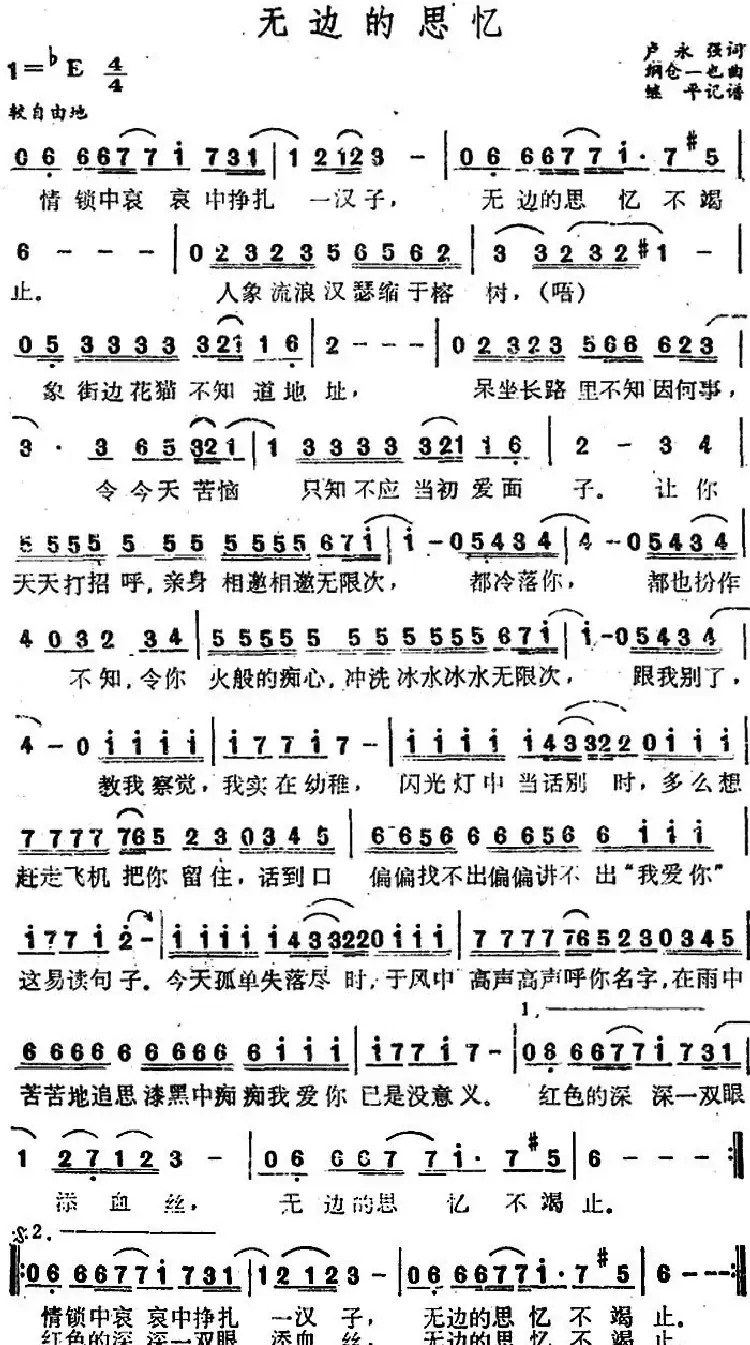 无边的思忆
1=♭E 4/4
卢永强词
纲仓一也曲
继平记谱
较自由地
0 6 6 6 7 7 i 7 3 1 | 1 2 1 2 3 - | 0 6 6 6 7 7 i · 7 #5
情锁中哀 哀中挣扎 一汉子, 无边的思 忆 不 竭
6 - - - | 0 2 3 2 3 5 6 5 6 2 | 3 3 2 3 2 #1 -
止。 人象流浪汉瑟缩于榕 树,(唔)
0 5 3 3 3 3 3 2 1 1 6 | 2 - - - | 0 2 3 2 3 5 6 6 6 2 3
象街边花猫不知道地址, 呆坐长路里不知因何事,
3 · 3 6 5 3 2 1 | 1 3 3 3 3 3 2 1 1 6 | 2 - 3 4
令今天苦恼 只知不应当初爱面 子。让你
5 5 5 5 5 5 5 5 5 5 5 6 7 i | i - 0 5 4 3 4 | 4 - 0 5 4 3 4
天天打招呼,亲身相邀相邀无限次, 都冷落你, 都也扮作
4 0 3 2 3 4 | 5 5 5 5 5 5 5 5 5 5 5 5 5 6 7 i | i - 0 5 4 3 4
不知,令你 火般的痴心,冲洗冰水冰水无限次, 跟我别了,
4 - 0 i i i i | i 7 7 i 7 - | i i i i i 4 3 3 2 2 0 i i i
教我察觉,我实在幼稚, 闪光灯中当话别 时,多么想
7 7 7 7 7 6 5 2 3 0 3 4 5 | 6 6 5 6 6 6 6 5 6 6 i i i
赶走飞机把你留住,话到口 偏偏找不出偏偏讲不出“我爱你”
i 7 7 i 2 - | i i i i i 4 3 3 2 2 0 i i i | 7 7 7 7 7 6 5 2 3 0 3 4 5
这易读句子。今天孤单失落尽时,于风中高声高声呼你名字,在雨中
1.
6 6 6 6 6 6 6 6 6 6 i i i | i 7 7 i 7 - | 0 6 6 6 7 7 i 7 3 1
苦苦地追思漆黑中痴痴我爱你 已是没意义。 红色的深 深一双眼
1 2 7 1 2 3 - | 0 6 6 6 7 7 i · 7 #5 | 6 - - - :||
添血丝, 无边的思忆不竭止。
𝄋 2.
||: 0 6 6 6 7 7 i 7 3 1 | 1 2 1 2 3 - | 0 6 6 6 7 7 i · 7 #5 | 6 - - - :||
情锁中哀 哀中挣扎 一汉 子, 无边的思 忆 不 竭止。
红色的深 深一双眼 添血 丝, 无边的思 忆 不 竭止。